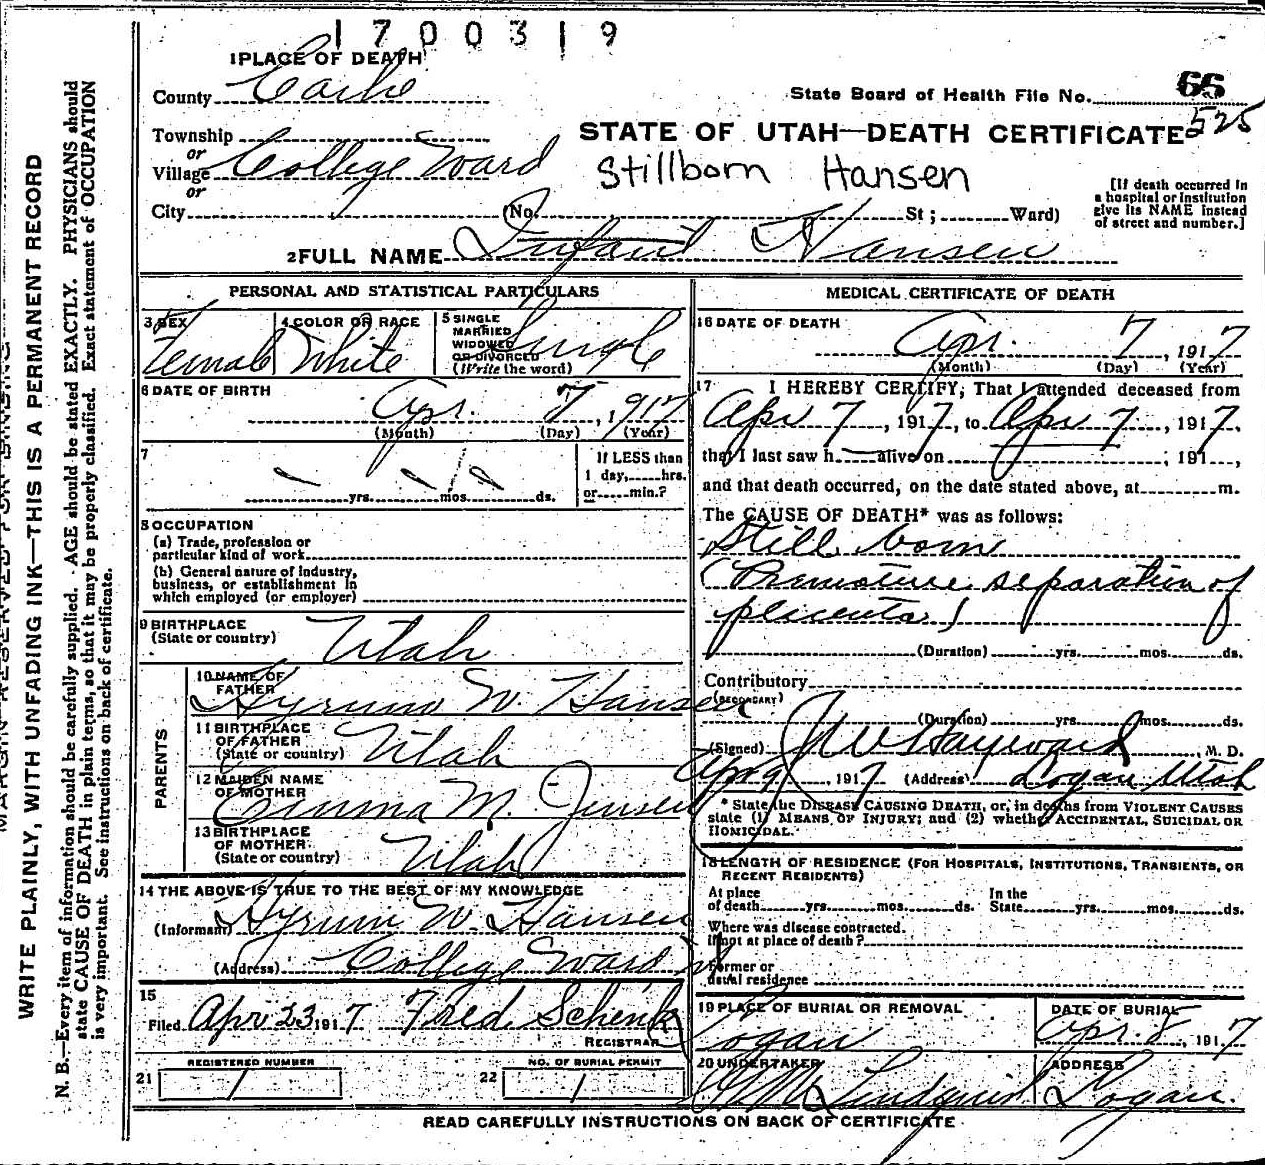 1700319
1 PLACE OF DEATH
County Cache
State Board of Health File No. 66
525
Township
or
Village College Ward
or
City (No. St; Ward)
STATE OF UTAH—DEATH CERTIFICATE
Stillborn Hansen
[If death occurred in
a hospital or institution
give its NAME instead
of street and number.]
2 FULL NAME Infant Hansen
PERSONAL AND STATISTICAL PARTICULARS
3 SEX
Female
4 COLOR OR RACE
White
5 SINGLE
MARRIED
WIDOWED
OR DIVORCED
(Write the word)
Single
6 DATE OF BIRTH
Apr. 7, 1917
(Month) (Day) (Year)
7
yrs. mos. ds.
If LESS than
1 day, hrs.
or min.?
8 OCCUPATION
(a) Trade, profession or
particular kind of work
(b) General nature of Industry,
business, or establishment in
which employed (or employer)
9 BIRTHPLACE
(State or country)
Utah
PARENTS
10 NAME OF
FATHER
Hyrum W. Hansen
11 BIRTHPLACE
OF FATHER
(State or country)
Utah
12 MAIDEN NAME
OF MOTHER
Emma M. Jensen
13 BIRTHPLACE
OF MOTHER
(State or country)
Utah
14 THE ABOVE IS TRUE TO THE BEST OF MY KNOWLEDGE
(Informant) Hyrum W. Hansen
(Address) College Ward
15
Filed Apr 23 1917 Fred Schenk
REGISTRAR
REGISTERED NUMBER
21 1
NO. OF BURIAL PERMIT
22 1
MEDICAL CERTIFICATE OF DEATH
16 DATE OF DEATH
Apr. 7, 1917
(Month) (Day) (Year)
17 I HEREBY CERTIFY, That I attended deceased from
Apr 7, 1917, to Apr 7, 1917,
that I last saw h alive on ; 191 ,
and that death occurred, on the date stated above, at m.
The CAUSE OF DEATH* was as follows:
Still born
(Premature separation of
placenta)
(Duration) yrs. mos. ds.
Contributory
(SECONDARY)
(Duration) yrs. mos. ds.
(Signed) Hayward, M. D.
Apr 9, 1917 (Address) Logan Utah
* State the DISEASE CAUSING DEATH, or, in deaths from VIOLENT CAUSES
state (1) MEANS OF INJURY; and (2) whether ACCIDENTAL, SUICIDAL OR
HOMICIDAL.
18 LENGTH OF RESIDENCE (FOR HOSPITALS, INSTITUTIONS, TRANSIENTS, OR
RECENT RESIDENTS)
At place
of death yrs. mos. ds.
In the
State yrs. mos. ds.
Where was disease contracted.
If not at place of death?
Former or
usual residence
19 PLACE OF BURIAL OR REMOVAL
Logan
DATE OF BURIAL
Apr. 8, 1917
20 UNDERTAKER
Lindquist
ADDRESS
Logan.
READ CAREFULLY INSTRUCTIONS ON BACK OF CERTIFICATE
WRITE PLAINLY, WITH UNFADING INK—THIS IS A PERMANENT RECORD
N. B.—Every item of information should be carefully supplied. AGE should be stated EXACTLY. PHYSICIANS should
state CAUSE OF DEATH in plain terms, so that it may be properly classified. Exact statement of OCCUPATION
is very important. See instructions on back of certificate.